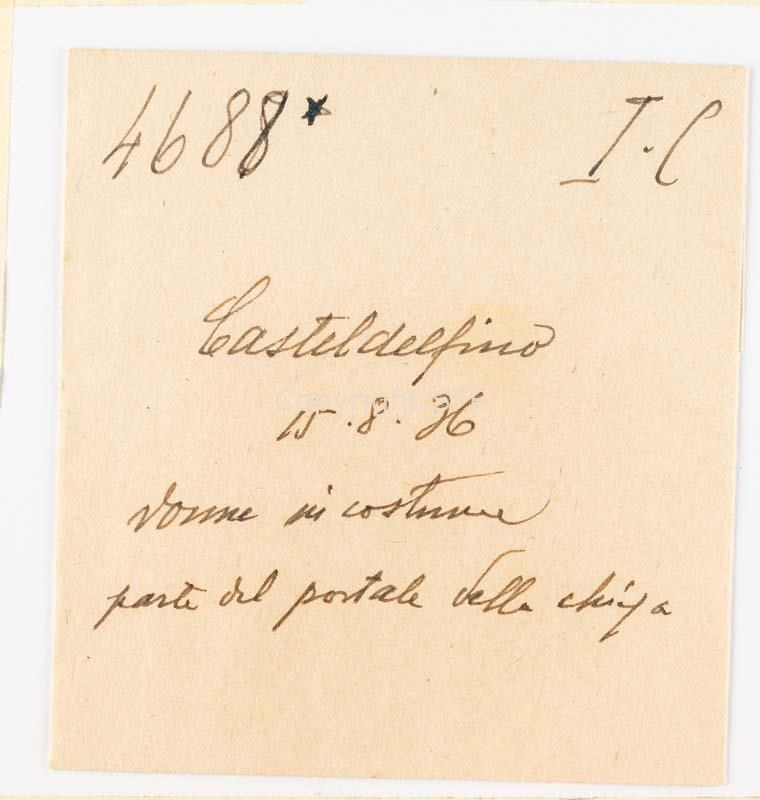 4688* I.C
Casteldelfino
15.8.36
donne in costume
parte del portale della chiesa